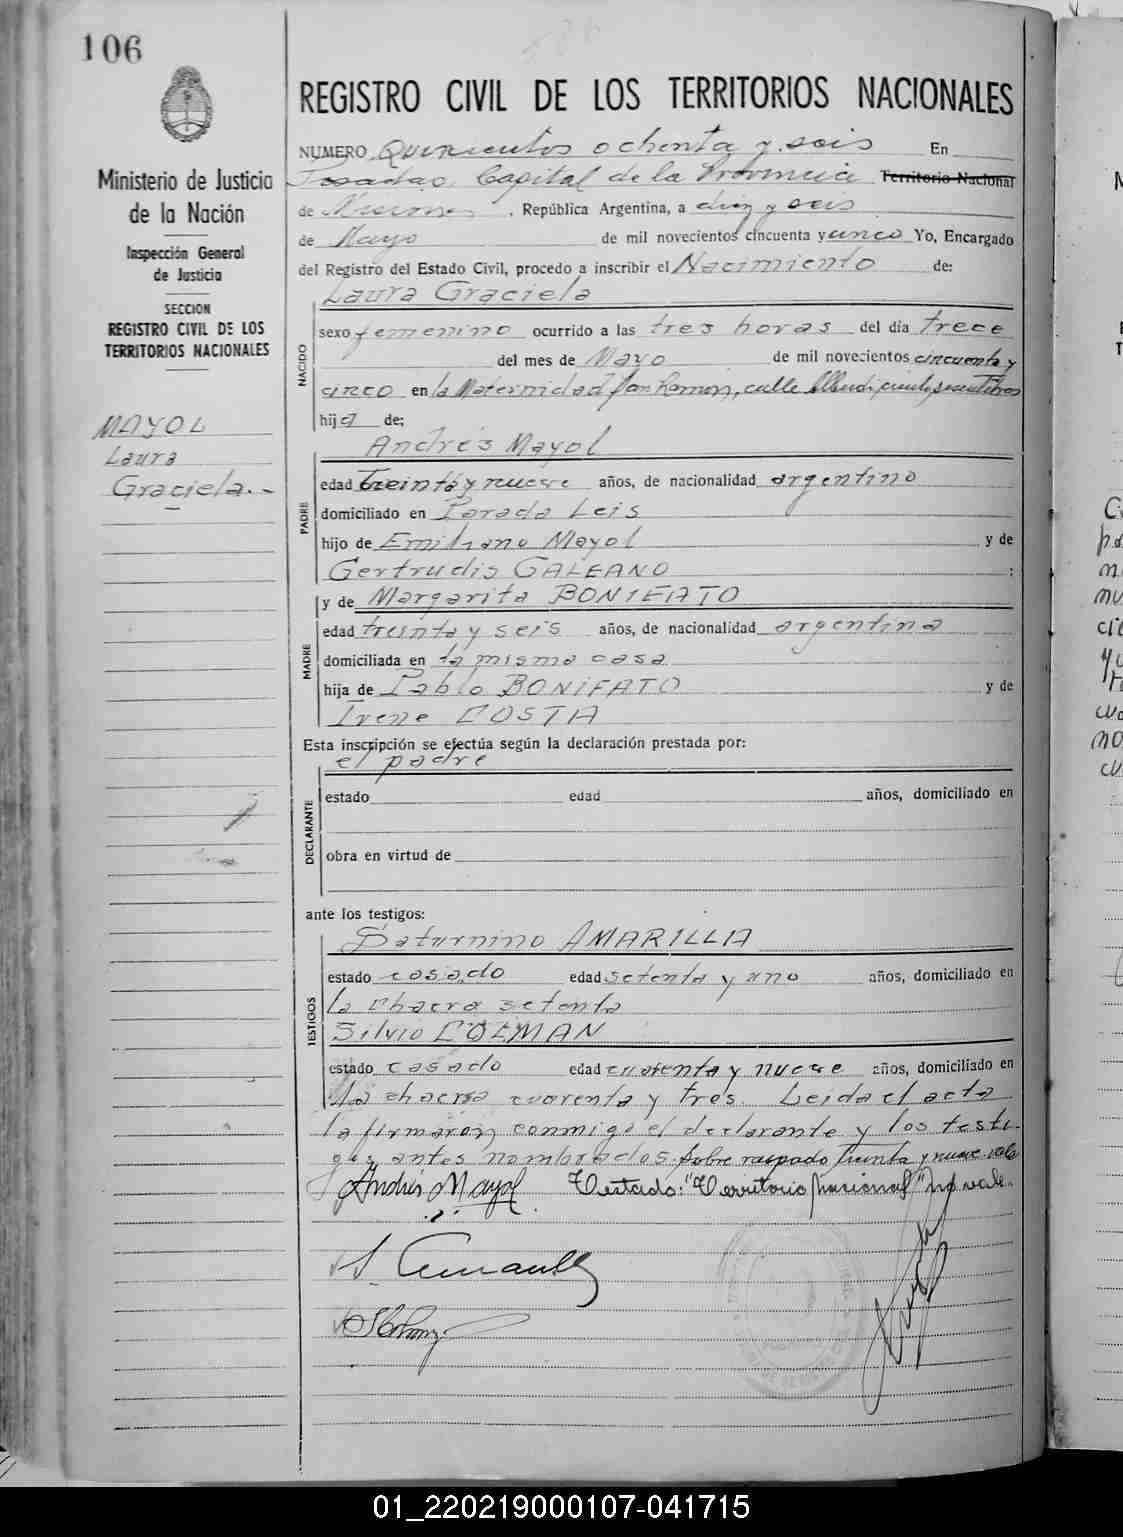 106
REGISTRO CIVIL DE LOS TERRITORIOS NACIONALES
Ministerio de Justicia
de la Nación
Inspección General
de Justicia
SECCION
REGISTRO CIVIL DE LOS
TERRITORIOS NACIONALES
MAYOL
Laura
Graciela.-
NUMERO Quinientos ochenta y seis En
Posadas, Capital de la Provincia Territorio Nacional
de Misiones, República Argentina, a diez y seis
de Mayo de mil novecientos cincuenta y cinco Yo, Encargado
del Registro del Estado Civil, procedo a inscribir el Nacimiento de:
Laura Graciela
NACIDO
sexo femenino ocurrido a las tres horas del día trece
del mes de Mayo de mil novecientos cincuenta y
cinco en la Maternidad San Ramon, calle
hija de;
Andrés Mayol
PADRE
edad treinta y nueve años, de nacionalidad argentino
domiciliado en Parada Leis
hijo de Emiliano Mayol y de
Gertrudis GALEANO ;
y de Margarita BONIFATO
MADRE
edad treinta y seis años, de nacionalidad argentina
domiciliada en la misma casa
hija de Pablo BONIFATO y de
Irene COSTA
Esta inscripción se efectúa según la declaración prestada por:
el padre
DECLARANTE
estado edad años, domiciliado en
obra en virtud de
ante los testigos:
Saturnino AMARILLA
TESTIGOS
estado casado edad setenta y uno años, domiciliado en
la chacra setenta
Silvio
estado casado edad cuarenta y nueve años, domiciliado en
la chacra cuarenta y tres. Leida el acta
la firmaron conmigo el declarante y los testi-
gos antes nombrados. Sobre raspado treinta y nueve vale
Andrés Mayol Testado: "Territorio Nacional" no vale.
01_220219000107-041715